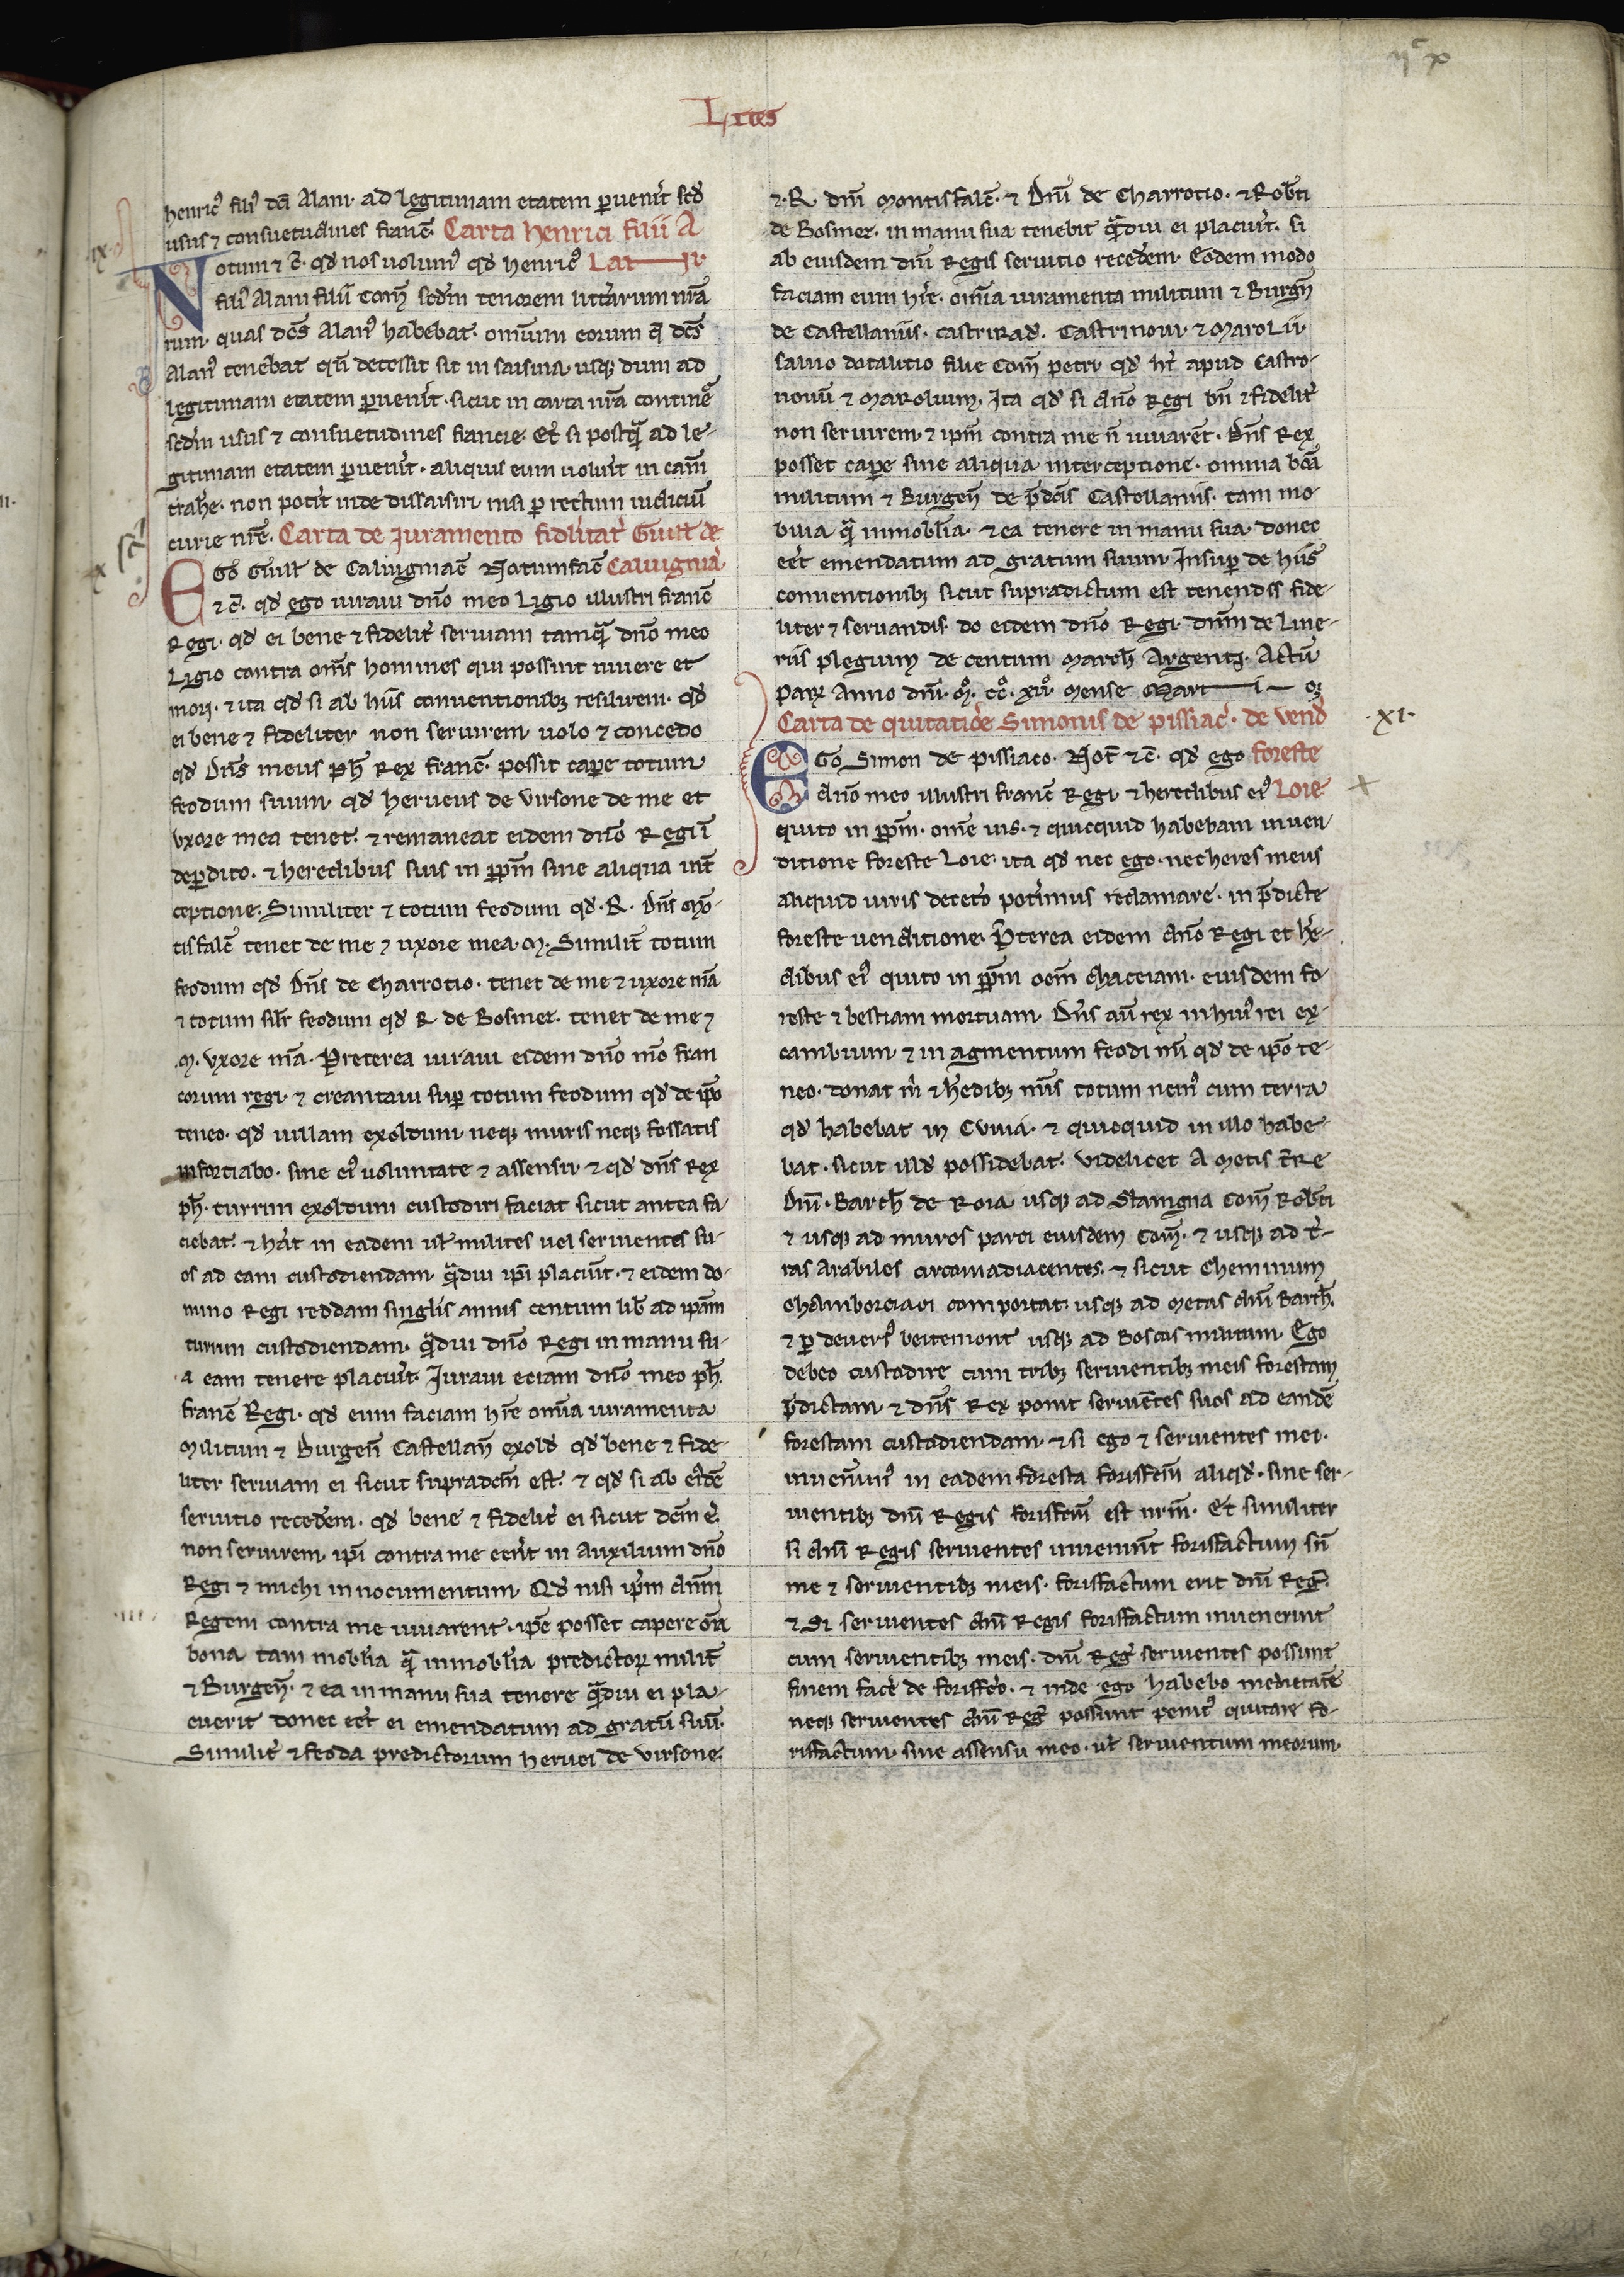 L itt̄es
henricꝰ filiꝰ dc̄i Alani. ad legitimam etatem ꝑuenit̓ scd̄
usus ⁊ consuetudines franc̄. Carta henrici filii A
Notum ⁊ c̄. qd̓ nos uolumꝰ qd̓ henricꝰ Lani
filiꝰ Alani filii Com̄ scd̄m tenorem litt̓arum nr̄a
rum. quas dc̄s Alanꝰ habebat. omnium eorum q̄ dc̄s
Alanꝰ tenebat qn̄ decessit sit in saisina. usq; dum ad
legitimam etatem ꝑuenit̓. sicut in carta nr̄a continet̓
scd̄m usus ⁊ consuetudines francie. Et si postq̄ ad le-
gitimam etatem ꝑuenit̓. aliquis eum uoluit̓ in cam̄
trahe̓. non potit̓ inde dissaisiri nisi ꝑ rectum iudiciū
curie nr̄e. Carta de Juramento fidlitat̓ Guill̄ de
EGo Guill̄ de Caluigniac̄ Notum fac̄ Caluignia̓
⁊ c̄. qd̓ ego iuraui dn̄o meo Ligio illustri franc̄
Regi. qd̓ ei bene ⁊ fidelit̓ seruiam tamq̄ dn̄o meo
Ligio contra om̄s homines qui possint uiuere et
mori. ⁊ ita qd̓ si ab hiis conuentionibꝫ resilirem. qd̓
ei bene ⁊ fideliter non seruirem uolo ⁊ concedo
qd̓ Dn̄s meus ph̄ Rex franc̄. possit capе̓ totum
feodum suum. qd̓ herueus de virsone de me et
vxore mea tenet. ⁊ remaneat eidem dn̄o Regi ī
deꝑdito. ⁊ heredibus suis in ꝑpm̄ sine aliqua int̄
ceptione. Similiter ⁊ totum feodum qd̓. R. Dn̄s Mō-
tisfalc̄ tenet de me ⁊ uxore mea. M. Similit̄ totum
feodum qd̓ Dn̄s de Charrotio. tenet de me ⁊ uxore mā
⁊ totum silr̄ feodum qd̓ R de Bosmer. tenet de me ⁊
.M. vxore mā. Preterea iuraui eidem dn̄o mō fran
corum regi. ⁊ creantaui suꝑ totum feodum qd̓ de ip̄o
teneo. qd̓ uillam exoldunii neqꝫ muris neqꝫ fossatis
infortiabo. sine eiꝰ uoluntate ⁊ assensu. ⁊ qd̓ dn̄s Rex
ph̄. turrim exoldunii custodiri faciat sicut antea fa-
ciebat. ⁊ hat̓ in eadem ul̄ milites uel seruientes su-
os ad eam custodiendam. q̄diu ip̄i placuit̓. ⁊ eidem do-
mino Regi reddam singlis annis centum lib̄ ad ip̄am
turrim custodiendam. q̄diu dn̄o Regi in manu su-
a eam tenere placuit̓. Iuraui eciam dn̄o meo ph̄.
franc̄ Regi. qd̓ eum faciam hr̄e om̄ia iuramenta
Militum ⁊ Burgen̄ Castellan̄ exold̓ qd̓ bene ⁊ fide-
liter seruiam ei sicut supradc̄m est. ⁊ qd̓ si ab ei̓dē
seruitio recede̓m. qd̓ bene ⁊ fidelit̓ ei sicut dc̄m e̓.
non seruirem. ip̄i contra me eēnt̓ in Auxilium dn̄o
Regi ⁊ michi in nocumentum. Qd̓ nisi ip̄m dn̄m
Regem contra me iuuarent. ip̄e posset capere oīa
bona tam moblīa q̄ inmoblīa predictoꝝ milit̄
⁊ Burgen̄. ⁊ ea in manu sua tenere q̄diu ei pla-
cuerit donec eēt ei emendatum ad gratū suū.
Similit̓ ⁊ feoda predictorum heruei de virsone.
⁊. R. dn̄i Montisfalc̄. ⁊ Dn̄i de Charrotio. ⁊ Rob̄ti
de Bosmer. in manu sua tenebit q̄diu ei placuit̓. si
ab eiusdem dn̄i Regis seruitio recede̓m. Eodem modo
faciam eum hr̄e. om̄ia iuramenta militum ⁊ Burgn̄
de Castellaniis. castrirad̓. Castrinoui ⁊ Marolii.
saluo dotalitio filie Com̄ petri. qd̓ ht̓ apud Castro-
nouū ⁊ Marolium. Ita qd̓ si dn̄o Regi bn̄ ⁊ fidelit̓
non seruirem. ⁊ ip̄m contra me n̄ iuuarēt. Dn̄s Rex
posset cape̓ sine aliqua interceptione. omnia bōa
militum ⁊ Burgen̄ de p̄dc̄is Castellaniis. tam mo
bilia q̄ inmobl̄ia. ⁊ ea tenere in manu sua donec
eēt emendatum ad gratum suum. Insuꝑ de hiis
conuentionibꝫ sicut supradictum est tenendis fide-
liter ⁊ seruandis. do eidem dn̄o Regi. dn̄m de Line-
riis plegium de centum March̄ Argenti. Actū
Paꝝ Anno dn̄i. Mͦ. ccͦ. xiiͦ. mense Marti-i-o;
Carta de quitatiōe Simonis de pissiac̄. de vend̓ .xi.
EGo Simon de pissiaco. Not̄ ⁊ c̄. qd̓ ego foreste
dn̄o meo illustri franc̄ Regi ⁊ heredibus eiꝰ Loie
quito in ꝑpm̄. om̄e ius. ⁊ quicquid habebam in uen
ditione foreste Loie. ita qd̓ nec ego. nec heres meus
aliquid iuris deceto̓ potimus reclamare. in p̄dicte
foreste uenditione. Pt̓erea eidem dn̄o Regi et he̓-
dibus eiꝰ quito in ꝑpm̄ oēm chaceiam. eiusdem fo-
reste ⁊ bestiam mortuam. Dn̄s aū rex in huiꝰ rei ex-
cambium ⁊ in agmentum feodi mī qd̓ de ip̄o te-
neo. donat m̄ ⁊ he̓dibꝫ m̄is totum nemꝰ cum terra
qd̓ habebat in Cuuia. ⁊ quicquid in illo habe-
bat. sicut illd̓ possidebat. Videlicet A metis tr̄e
Dn̄i. Barth̄ de Roia usqꝫ ad Stangna Com̄ Rob̄ti
⁊ usqꝫ ad muros parci eiusdem Com̄. ⁊ usqꝫ ad t̓-
ras Arabiles circumadiacentes. ⁊ sicut Cheminum
chamborciaci comportat. usqꝫ ad metas dn̄i Barth̄.
⁊ ꝑ deuersꝰ beitemont usqꝫ ad Boscus militum. Ego
debeo custodire cum tribꝫ seruientibꝫ meis forestam
p̄dictam. ⁊ dn̄s Rex ponit seruiētes suos ad eandē
forestam custodiendam. ⁊ si ego ⁊ seruientes mei.
inuenimꝰ in eadem foresta forisfc̄m aliqd̓. sine ser-
uientibꝫ dn̄i Regis forisfc̄m est nr̄m. Et similiter
si dn̄i Regis seruientes inueniūt forisfactum sn̄
me ⁊ seruientibꝫ meis. forisfactum erit dn̄i Reg̓.
⁊ Si seruientes dn̄i Regis forisfactum inuenerint
cum seruientibꝫ meis. dn̄i Reg̓ seruientes possunt
finem face̓ de forisfc̄o. ⁊ inde ego habebo medietatē
neqꝫ seruientes dn̄i Reg̓ possunt penitꝰ quitare fo-
risfactum. sine assensu meo. ul̄ seruientum meorum.